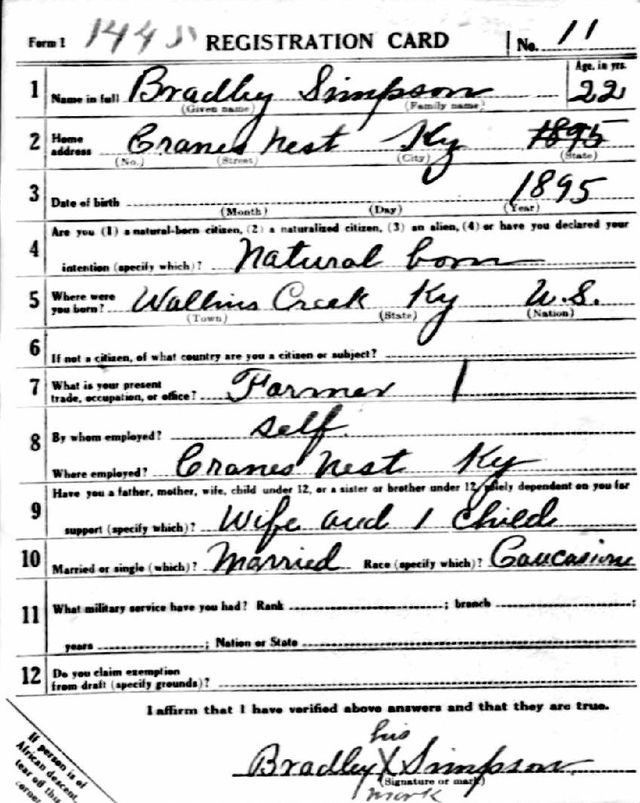 Form 1 1445 REGISTRATION CARD No. 11
1 Name in full Bradley Simpson Age, in yrs. 22
(Given name) (Family name)
2 Home address Cranes Nest Ky 1895
(No.) (Street) (City) (State)
3 Date of birth 1895
(Month) (Day) (Year)
4 Are you (1) a natural-born citizen, (2) a naturalized citizen, (3) an alien, (4) or have you declared your
intention (specify which)? Natural born
5 Where were you born? Wallins Creek Ky U.S.
(Town) (State) (Nation)
6 If not a citizen, of what country are you a citizen or subject?
7 What is your present trade, occupation, or office? Farmer 1
8 By whom employed? self.
Where employed? Cranes Nest Ky
9 Have you a father, mother, wife, child under 12, or a sister or brother under 12, solely dependent on you for
support (specify which)? Wife and 1 Child
10 Married or single (which)? Married Race (specify which)? Caucasian
11 What military service have you had? Rank ; branch ;
years ; Nation or State
12 Do you claim exemption
from draft (specify grounds)?
I affirm that I have verified above answers and that they are true.
his
Bradley X Simpson
(Signature or mark)
mark
If person is of
African descent,
tear off this
corner